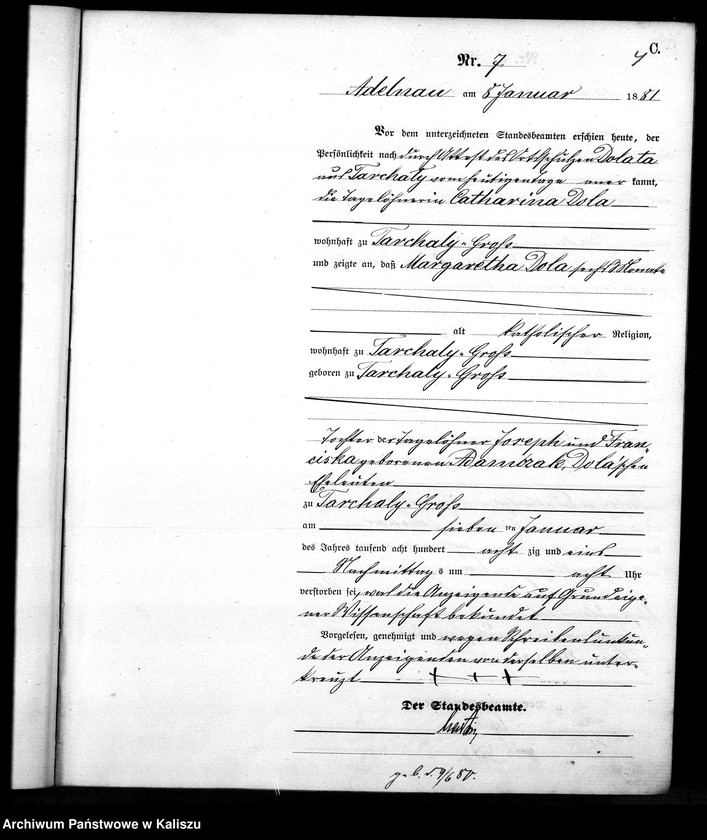 C.
Nr. 7. 7
Adelnau am 8 Januar 1881
Vor dem unterzeichneten Standesbeamten erschien heute, der
Persönlichkeit nach durch Attest des Ortsschulzen Dolata
aus Tarchaly vom heutigen Tage aner kannt,
die Tagelöhnerin Catharina Dola
wohnhaft zu Tarchaly-Groß
und zeigte an, daß Margaretha Dola sechs Monate
alt katholischer Religion,
wohnhaft zu Tarchaly-Groß
geboren zu Tarchaly-Groß
Tochter der Tagelöhner Joseph und Fran-
ciska geborenen Adamczak, Dola'schen
Eheleuten
zu Tarchaly-Groß
am sieben ten Januar
des Jahres tausend acht hundert acht zig und eins
Nachmittag s um acht Uhr
verstorben sei, was die Anzeigende auf Grund eige-
ner Wissenschaft bekundet
Vorgelesen, genehmigt und wegen Schreibensunkun-
de der Anzeigenden von derselben unter-
kreuzt + + +
Der Standesbeamte.
geb. d. 9/6 80.
Archiwum Państwowe w Kaliszu